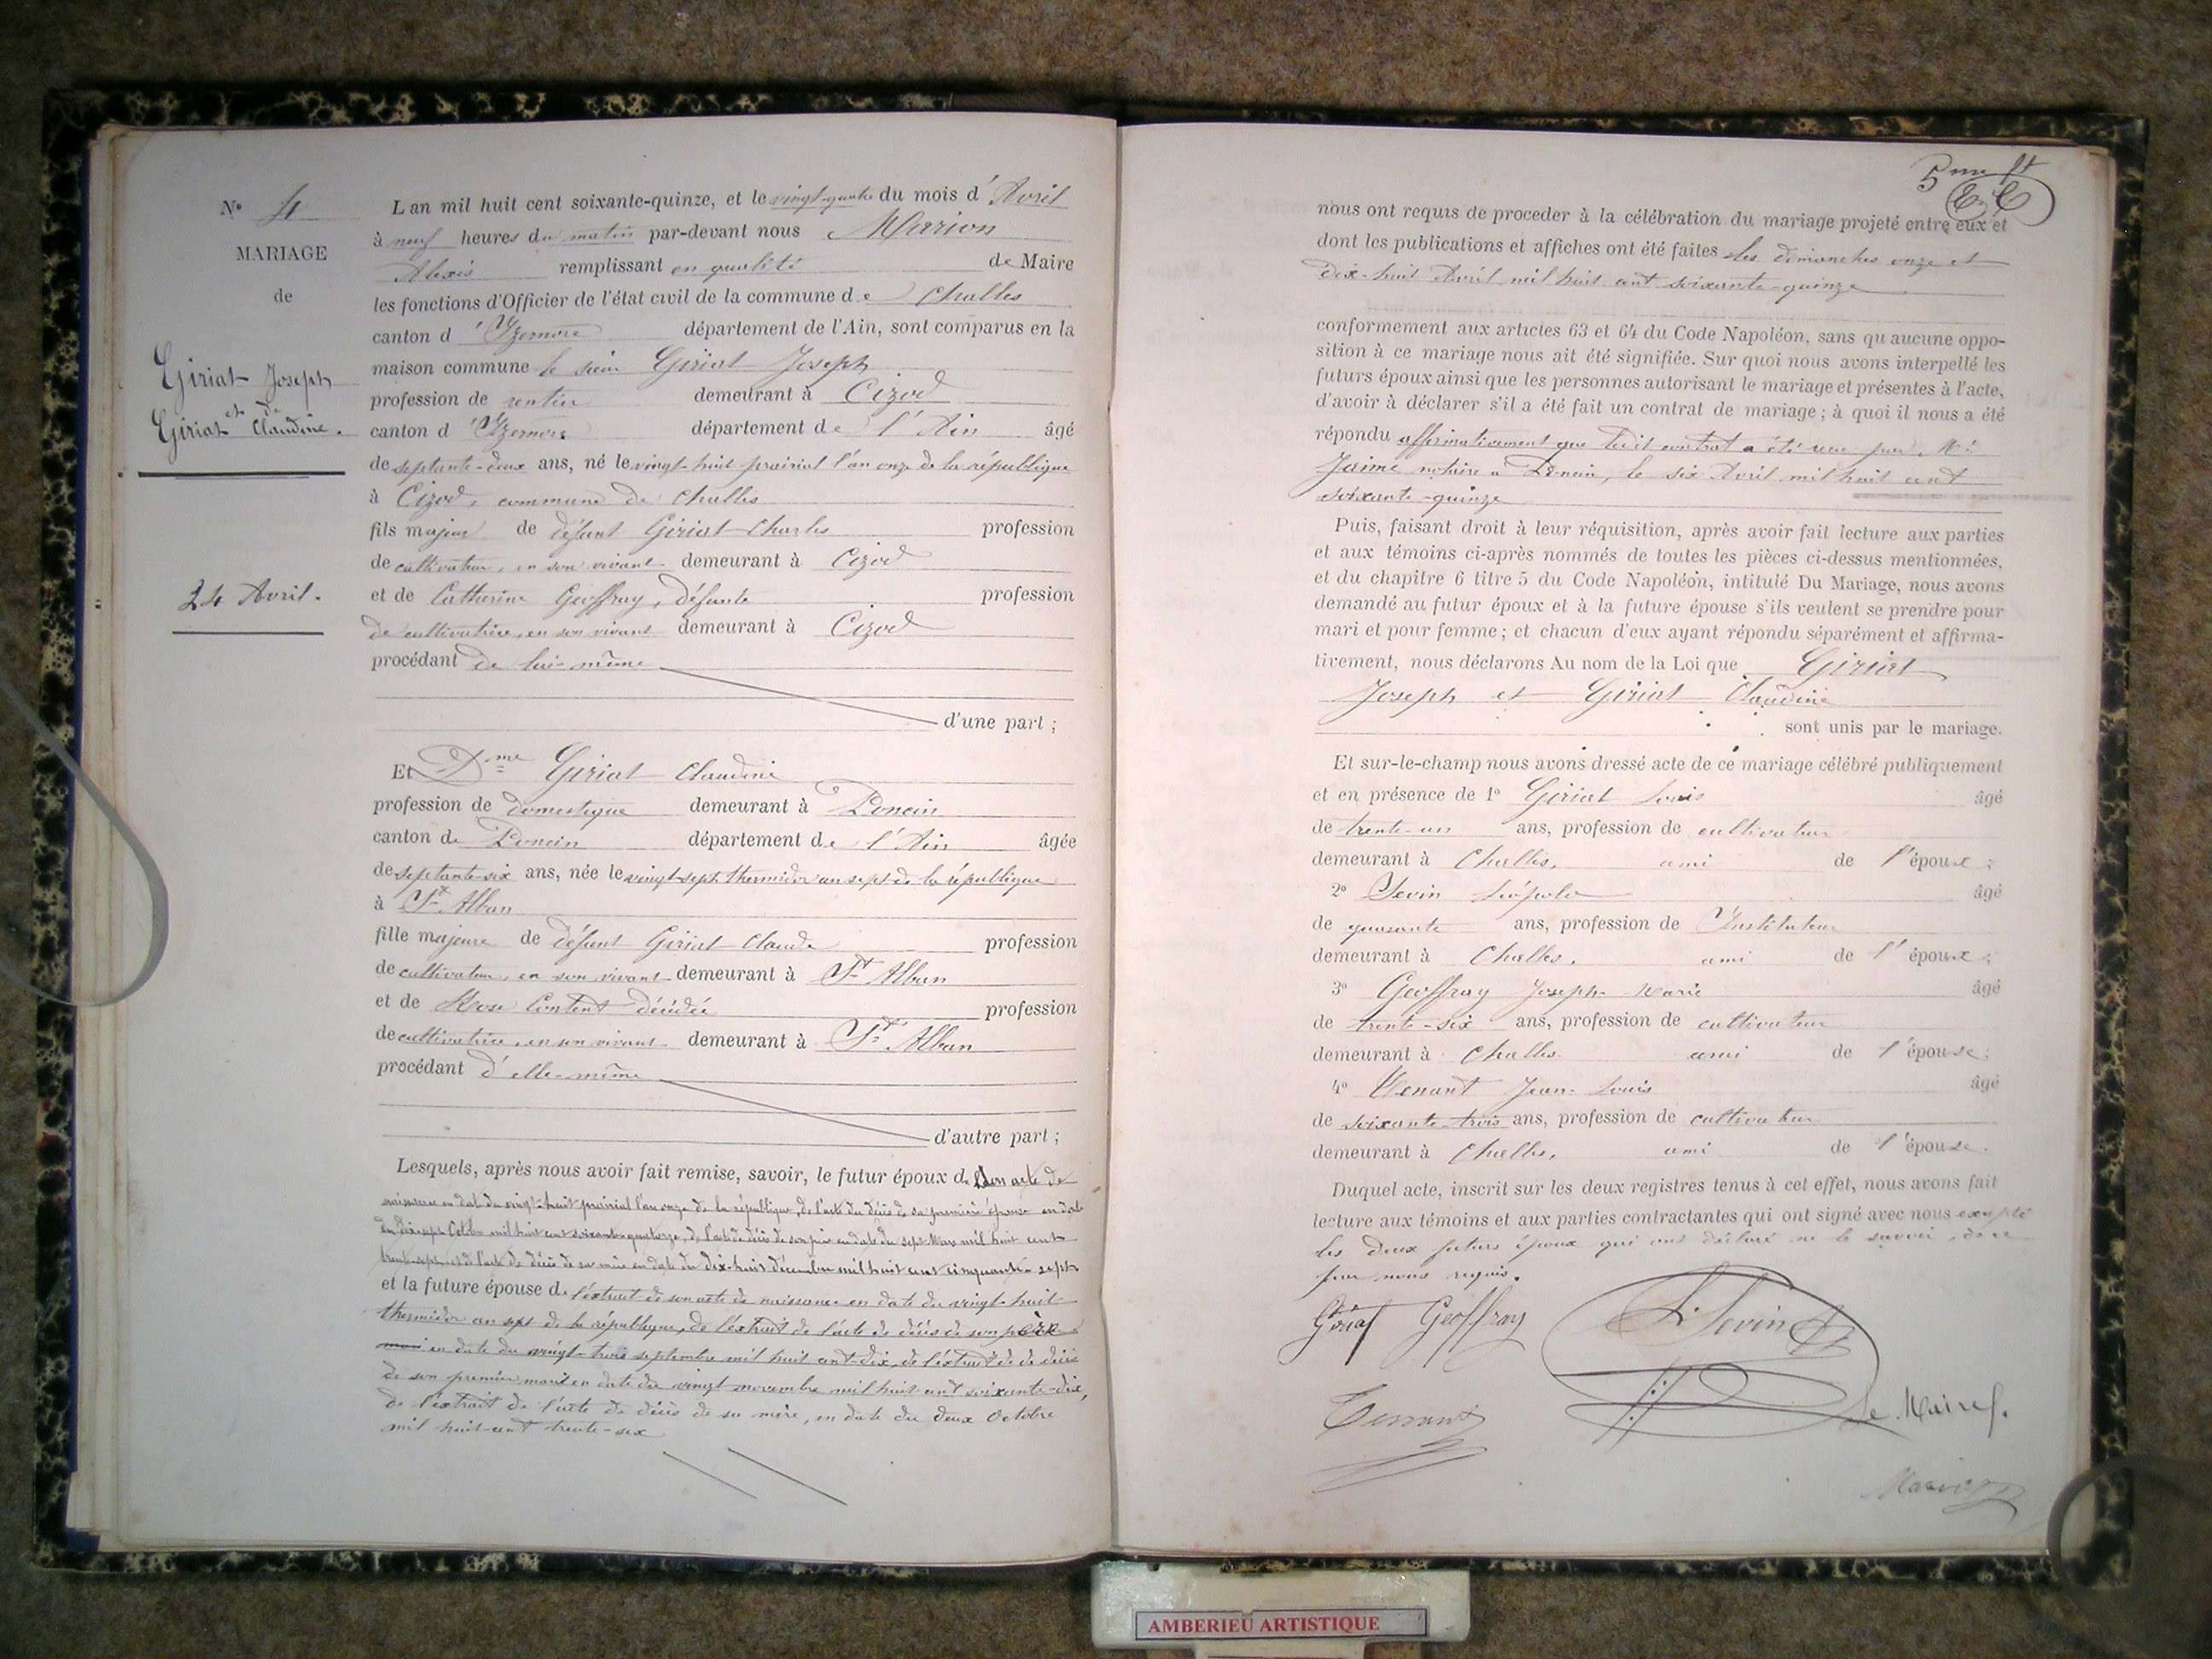 N° 4
MARIAGE
de
Giriat Joseph
et de
Giriat Claudine.
24 Avril.
L'an mil huit cent soixante-quinze, et le vingt-quatre du mois d'Avril
à neuf heures du matin par-devant nous Marion
Alexis remplissant en qualité de Maire
les fonctions d'Officier de l'état civil de la commune de Challes
canton d'Yzernore département de l'Ain, sont comparus en la
maison commune le sieur Giriat Joseph
profession de rentier demeurant à Cizod
canton d'Yzernore département de l'Ain âgé
de septante-deux ans, né le vingt-huit prairial l'an onze de la république
à Cizod, commune de Challes
fils majeur de défunt Giriat Charles profession
de cultivateur, en son vivant demeurant à Cizod
et de Catherine Geoffray, défunte profession
de cultivatrice, en son vivant demeurant à Cizod
procédant de lui-même
d'une part ;
Et Dme Giriat Claudine
profession de domestique demeurant à Poncin
canton de Poncin département de l'Ain âgée
de septante-six ans, née le vingt-sept thermidor an sept de la république
à St Alban
fille majeure de défunt Giriat Claude profession
de cultivateur, en son vivant demeurant à St Alban
et de Rose Content décédée profession
de cultivatrice, en son vivant demeurant à St Alban
procédant d'elle-même
d'autre part ;
Lesquels, après nous avoir fait remise, savoir, le futur époux de son acte de
naissance en date du vingt-huit prairial l'an onze de la république, de l'acte du décès de sa première épouse en date
du dix-sept Octobre mil huit cent soixante-quatorze, de l'acte de décès de son père en date du sept Mars mil huit cent
trente-sept et de l'acte de décès de sa mère en date du dix-huit décembre mil huit cent cinquante-sept
et la future épouse de l'extrait de son acte de naissance en date du vingt-huit
thermidor an sept de la république, de l'extrait de l'acte de décès de son père
en date du vingt-trois septembre mil huit cent-dix, de l'extrait de de décès
de son premier mari en date du vingt novembre mil huit-cent soixante-dix,
de l'extrait de l'acte de décès de sa mère, en date du deux Octobre
mil huit-cent trente-six
5me ft
nous ont requis de proceder à la célébration du mariage projeté entre eux et
dont les publications et affiches ont été faites les dimanches onze et
dix-huit Avril mil huit cent soixante-quinze
conformement aux articles 63 et 64 du Code Napoléon, sans qu'aucune oppo-
sition à ce mariage nous ait été signifiée. Sur quoi nous avons interpellé les
futurs époux ainsi que les personnes autorisant le mariage et présentes à l'acte,
d'avoir à déclarer s'il a été fait un contrat de mariage ; à quoi il nous a été
répondu affirmativement que ledit contrat a été reçu par Me
Jaime notaire à Poncin, le six Avril mil huit cent
soixante-quinze
Puis, faisant droit à leur réquisition, après avoir fait lecture aux parties
et aux témoins ci-après nommés de toutes les pièces ci-dessus mentionnées,
et du chapitre 6 titre 5 du Code Napoléon, intitulé Du Mariage, nous avons
demandé au futur époux et à la future épouse s'ils veulent se prendre pour
mari et pour femme ; et chacun d'eux ayant répondu séparément et affirma-
tivement, nous déclarons Au nom de la Loi que Giriat
Joseph et Giriat Claudine
sont unis par le mariage.
Et sur-le-champ nous avons dressé acte de ce mariage célébré publiquement
et en présence de 1° Giriat Louis âgé
de trente-un ans, profession de cultivateur
demeurant à Challes, ami de l'époux ;
2° Sevin Léopold âgé
de quarante ans, profession de Instituteur
demeurant à Challes. ami de l'époux ;
3° Geoffray Joseph-Marie âgé
de trente-six ans, profession de cultivateur
demeurant à Challes ami de l'épouse ;
4° Jean-Louis âgé
de soixante-trois ans, profession de cultivateur
demeurant à Challes, ami de l'épouse.
Duquel acte, inscrit sur les deux registres tenus à cet effet, nous avons fait
lecture aux témoins et aux parties contractantes qui ont signé avec nous excepté
les deux futurs époux qui ont déclaré ne le savoir, de ce
par nous requis.
Giriat Geoffray L. Sevin
Le Maire
Marion
AMBERIEU ARTISTIQUE